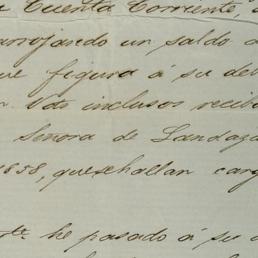 Cuenta Corriente,
arrojando un saldo
figura á su
Vds inclusos
Señora de Landaza
1858, que se hallan
he pasado á su